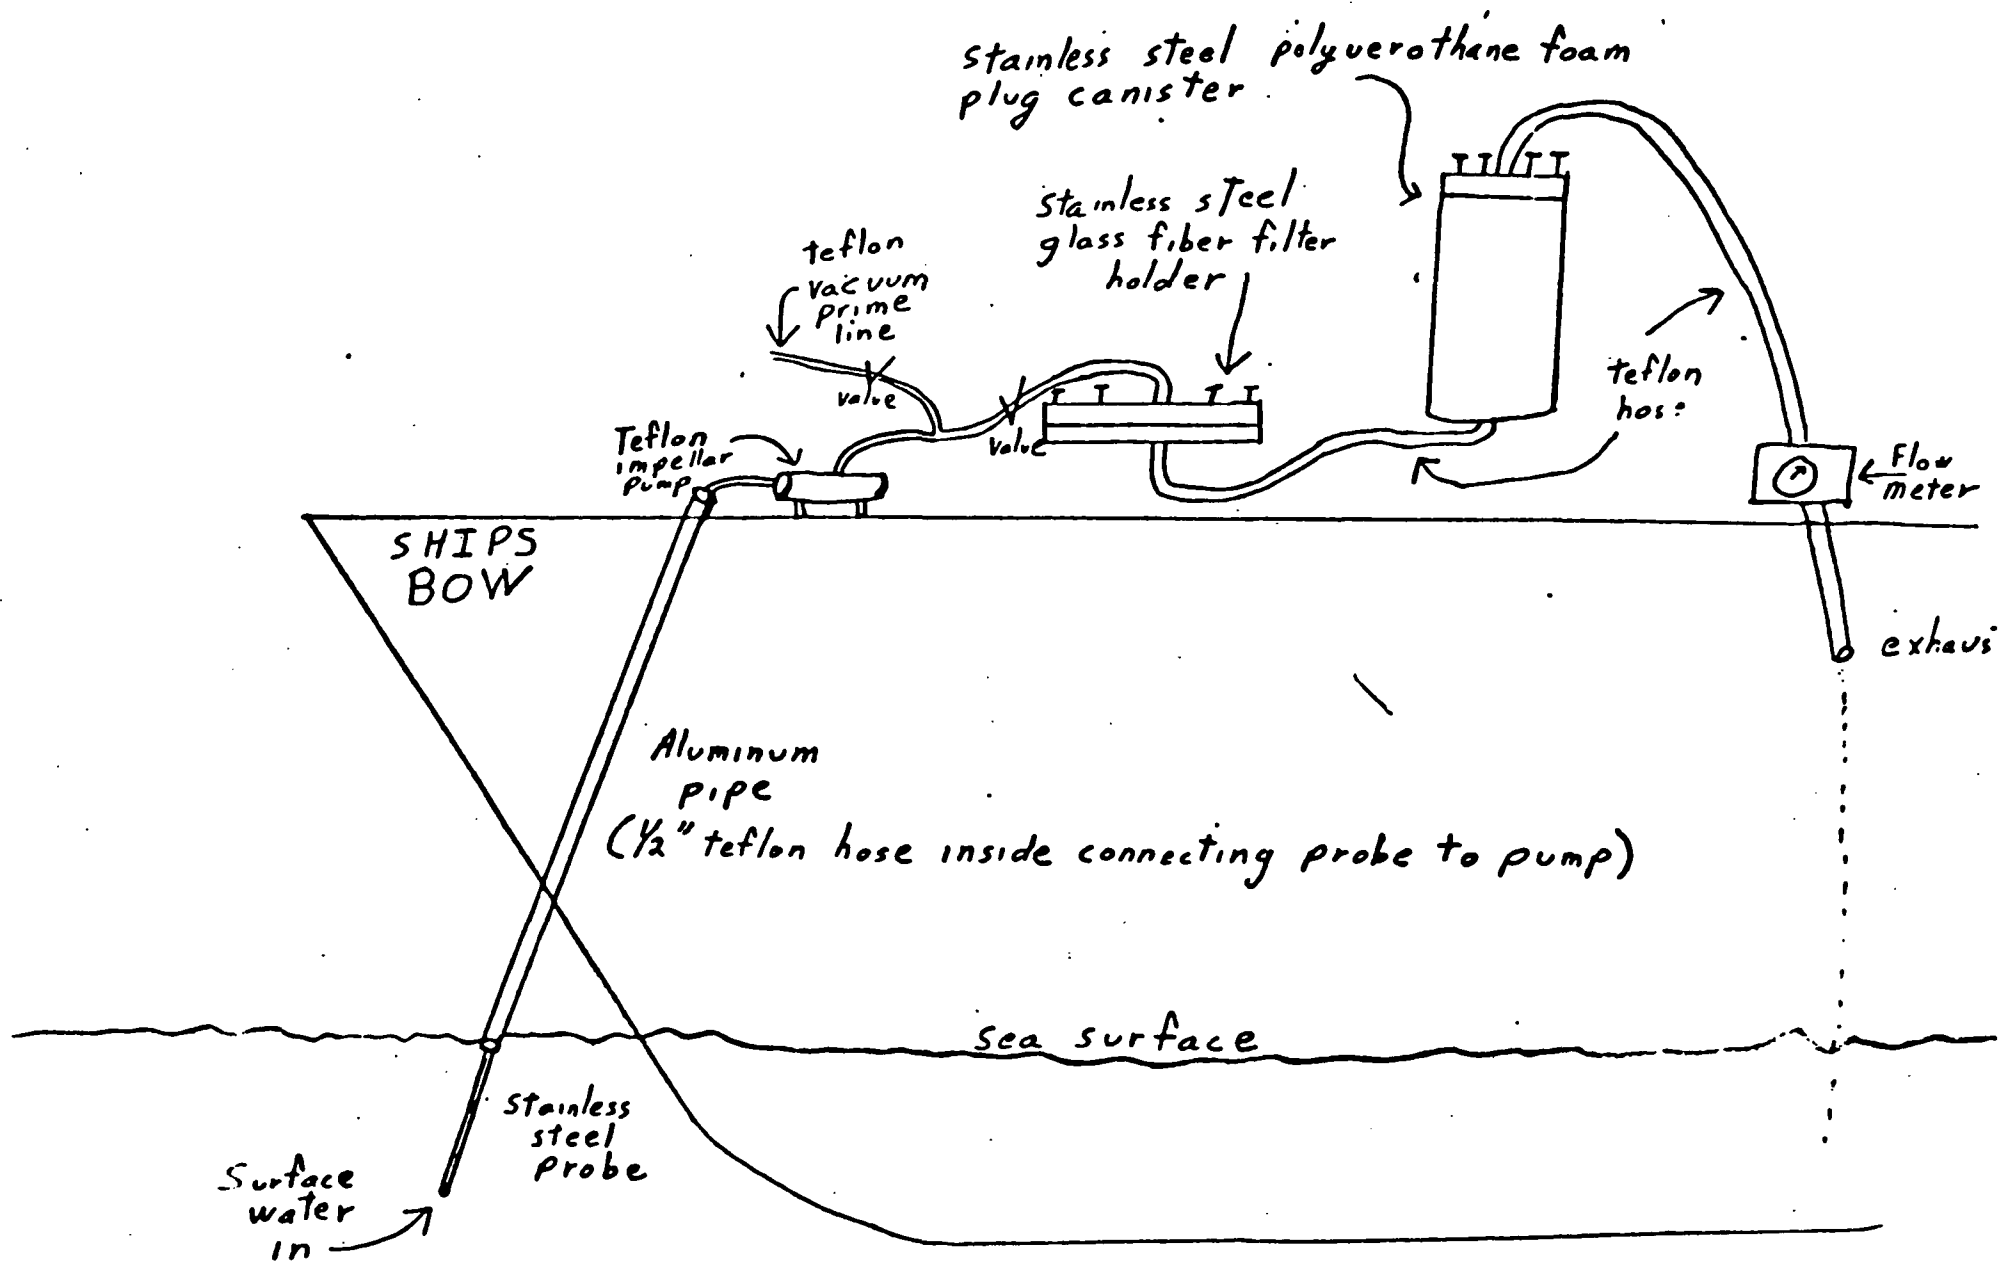 stainless steel polyuerothane foam
plug canister
stainless steel
glass fiber filter
holder
teflon
vacuum
prime
line
valve
valve
Teflon
impellar
pump
teflon
hose
Flow
meter
SHIPS
BOW
exhaus
Aluminum
pipe
(1/2" teflon hose inside connecting probe to pump)
sea surface
Stainless
steel
probe
Surface
water
in